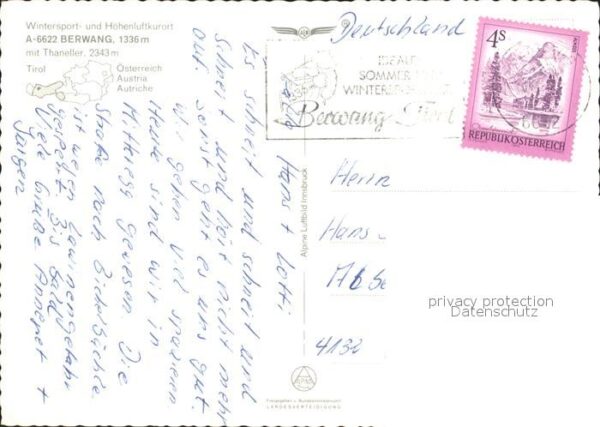 Wintersport- und Höhenluftkurort
A-6622 BERWANG, 1336 m
mit Thaneller, 2343 m
Tirol
Österreich
Austria
Autriche
Deutschland
4s
REPUBLIK ÖSTERREICH
IDEALE
SOMMER
WINTERSP
Berwang
Hallo Hans + Lotti
Es schneit und schneit und
schneit und hört nicht mehr
auf, sonst geht es uns gut.
Wir gehen viel spazieren
Heute sind wir in
gewesen. Die
Straße nach Bichelbächle
ist wegen Lawinengefahr
gesperrt. Bis bald
Viele Grüße Annegret +
Jürgen
Herrn
Hans
4132
Alpine Luftbild Innsbruck
Freigegeben v. Bundesministerium
LANDESVERTEIDIGUNG
privacy protection
Datenschutz